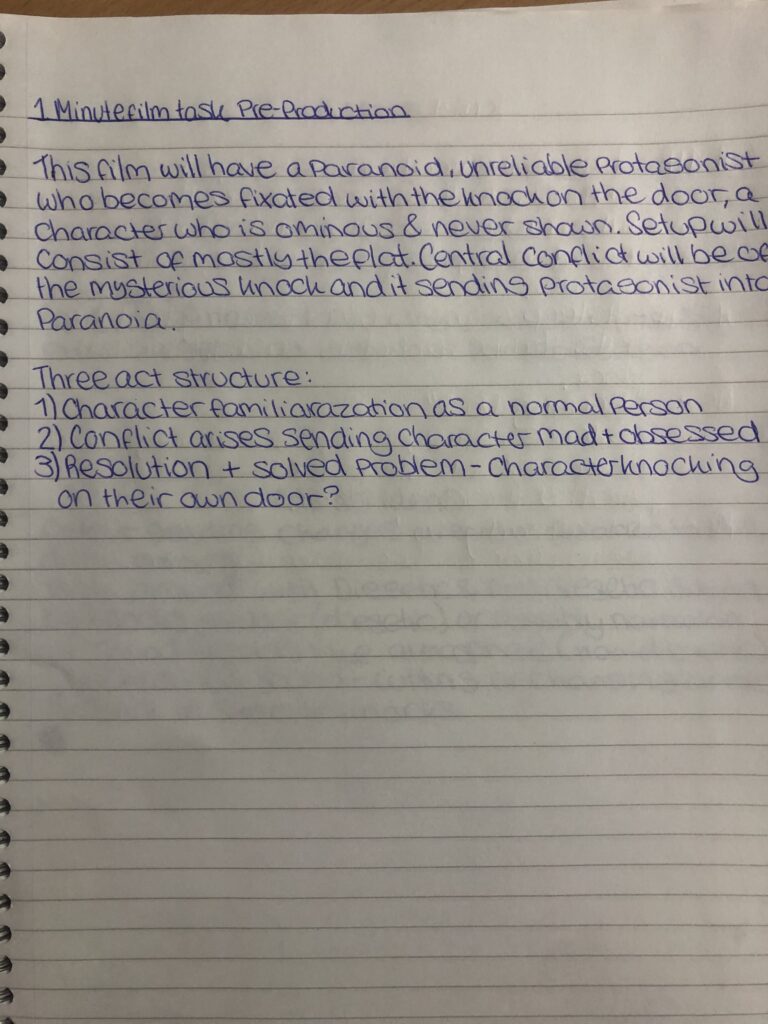 1 Minute film task Pre-Production
This film will have a paranoid, unreliable protagonist
who becomes fixated with the knock on the door, a
character who is ominous & never shown. Setup will
consist of mostly the flat. Central conflict will be of
the mysterious knock and it sending protagonist into
paranoia.
Three act structure:
1) Character familiarazation as a normal person
2) Conflict arises sending character mad + obsessed
3) Resolution + solved problem - character knocking
on their own door?